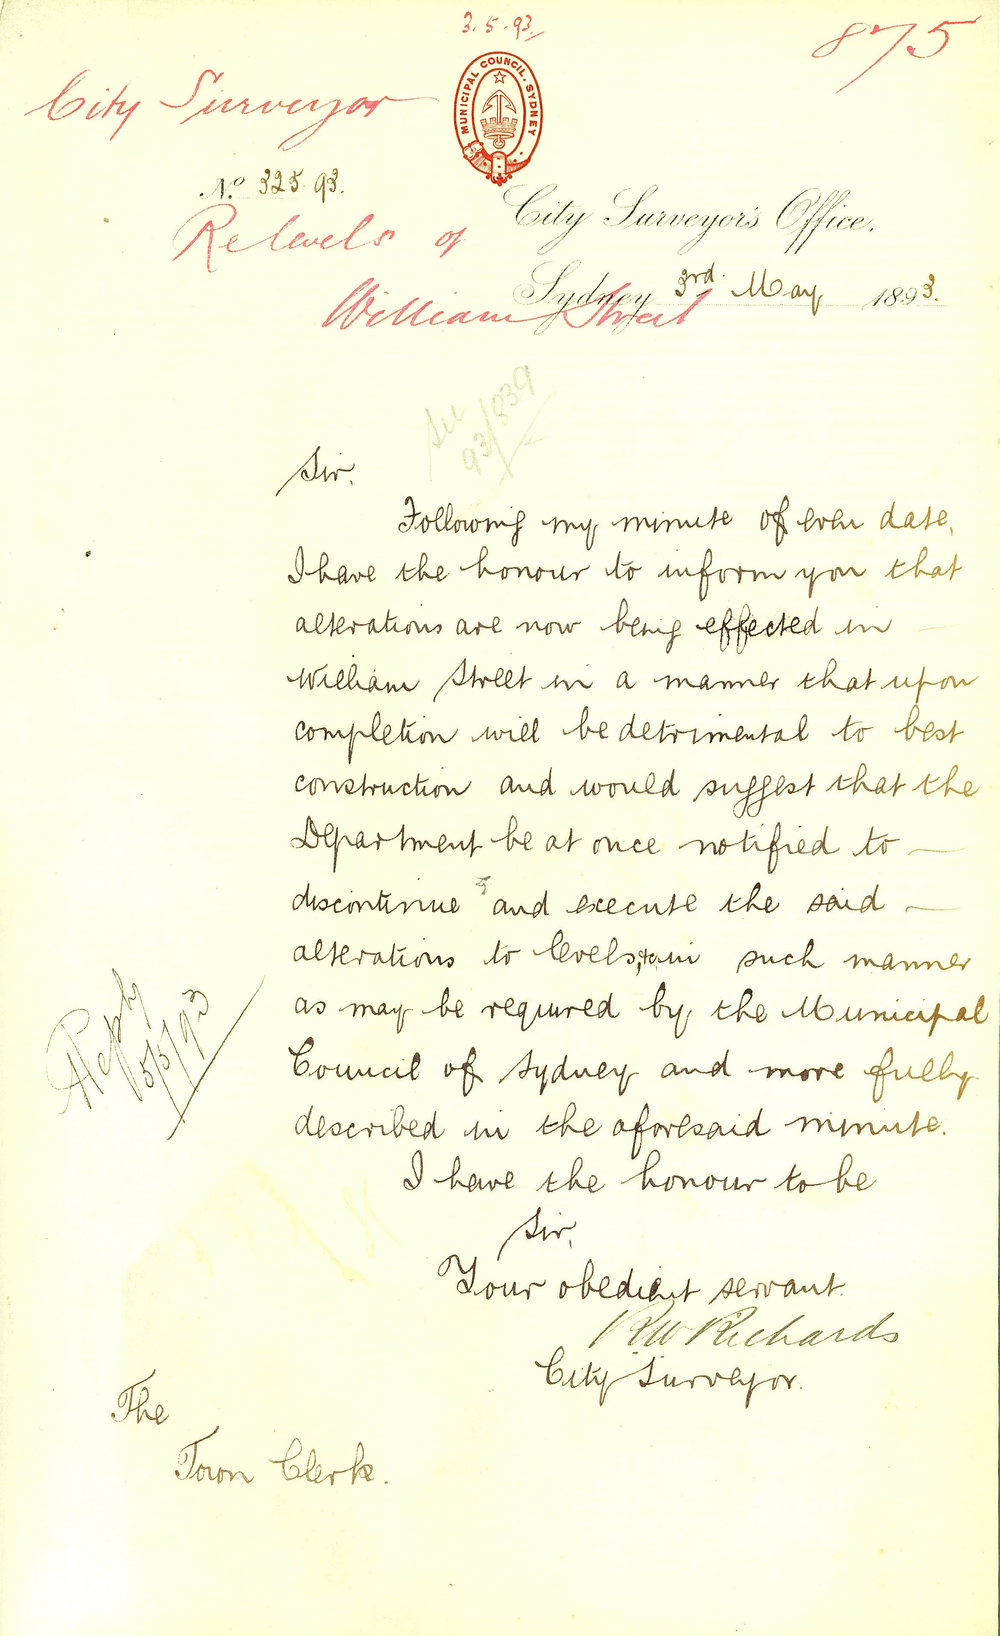 3.5.93
875
City Surveyor
MUNICIPAL COUNCIL, SYDNEY
No. 325.93.
Re levels of
City Surveyor's Office,
Sydney 3rd. May 1893.
William Street
See
93/839
Sir,
Following my minute of even date,
I have the honour to inform you that
alterations are now being effected in —
William Street in a manner that upon
completion will be detrimental to best
construction and would suggest that the
Department be at once notified to —
discontinue and execute the said —
alterations to levels, in such manner
as may be required by the Municipal
Council of Sydney and more fully
described in the aforesaid minute.
Reply
5/5/93
I have the honour to be
Sir,
Your obedient servant.
RW Richards
City Surveyor.
The
Town Clerk.